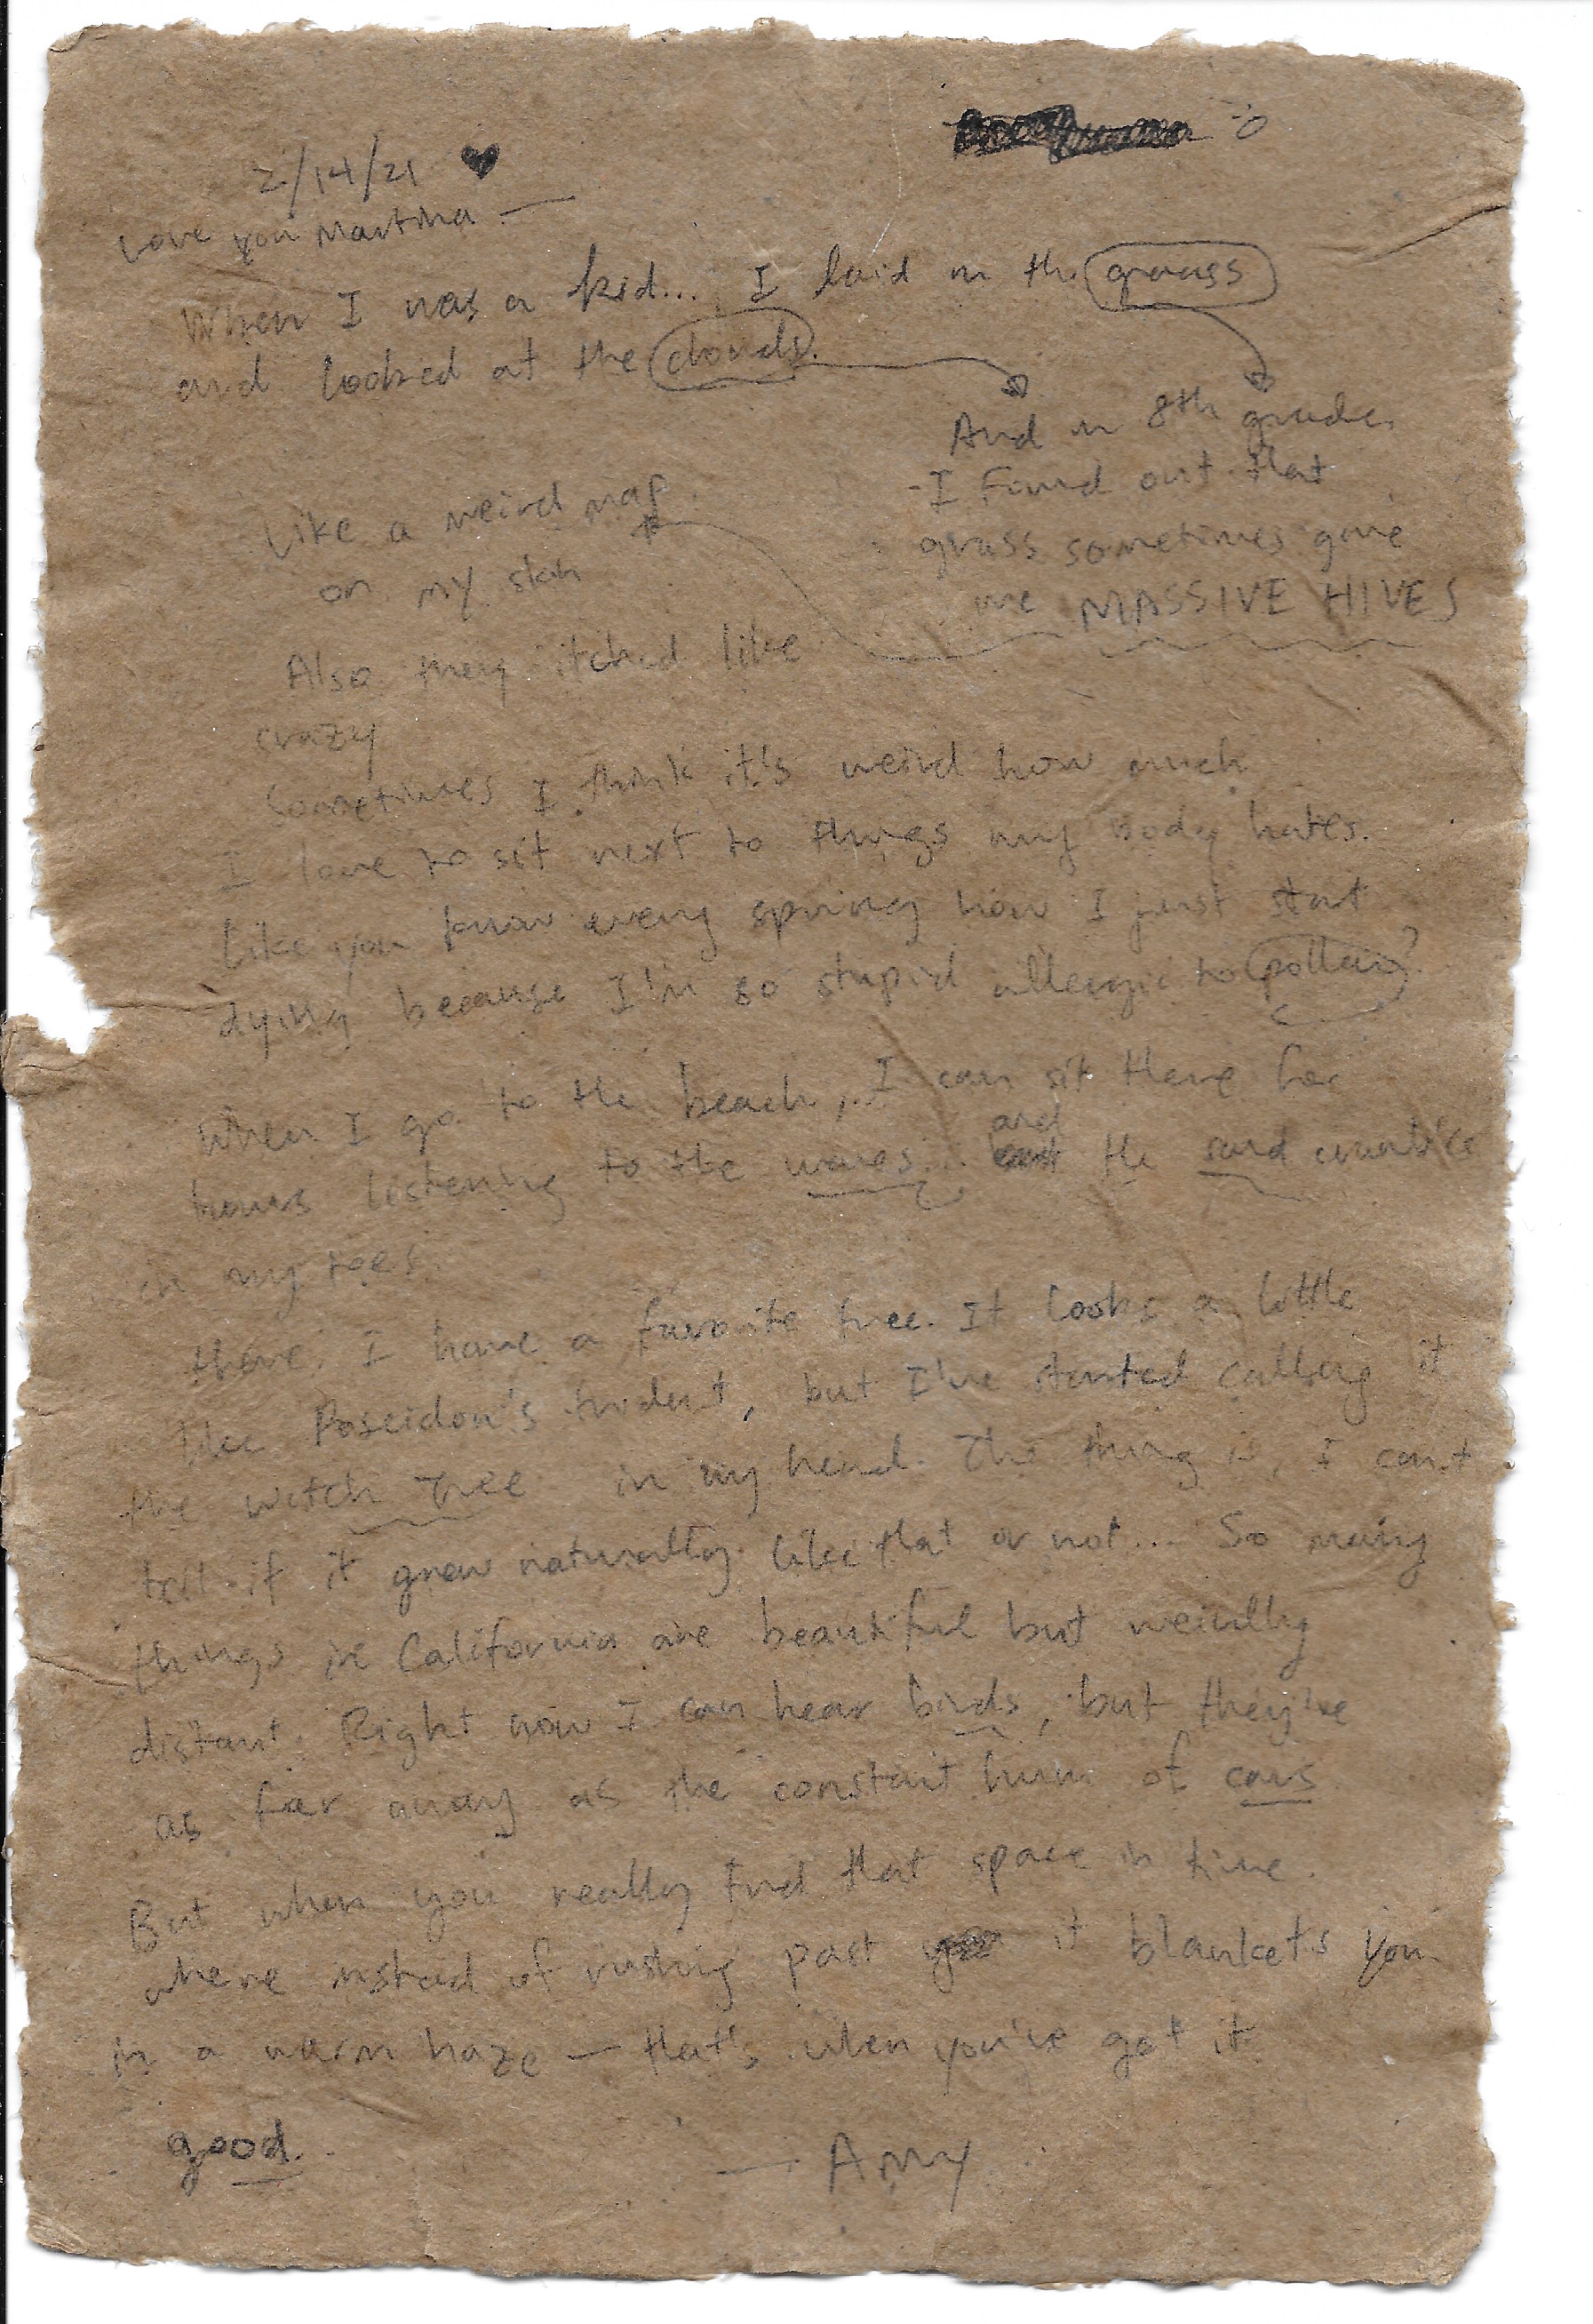 2/14/21 ♥
Love you Martina —
When I was a kid... I laid in the grass
and looked at the clouds.
And in 8th grade,
I found out that
grass sometimes gave
me MASSIVE HIVES
Like a weird map
on my skin
Also they itched like
crazy
Sometimes I think it's weird how much
I love to sit next to things my body hates.
Like you know every spring how I just start
dying because I'm so stupid allergic to pollen?
When I go to the beach, I can sit there for
hours listening to the waves... and the sand
in my toes.
there. I have a favorite tree. It looks a little
like Poseidon's trident, but I've started calling it
the witch Tree in my head. The thing is, I can't
tell if it grew naturally like that or not... So many
things in California are beautiful but weirdly
distant. Right now I can hear birds, but they're
as far away as the constant hum of cars
But when you really find that space in time.
where instead of rushing past it blankets you
in a warm haze — that's when you've got it
good.
— Amy